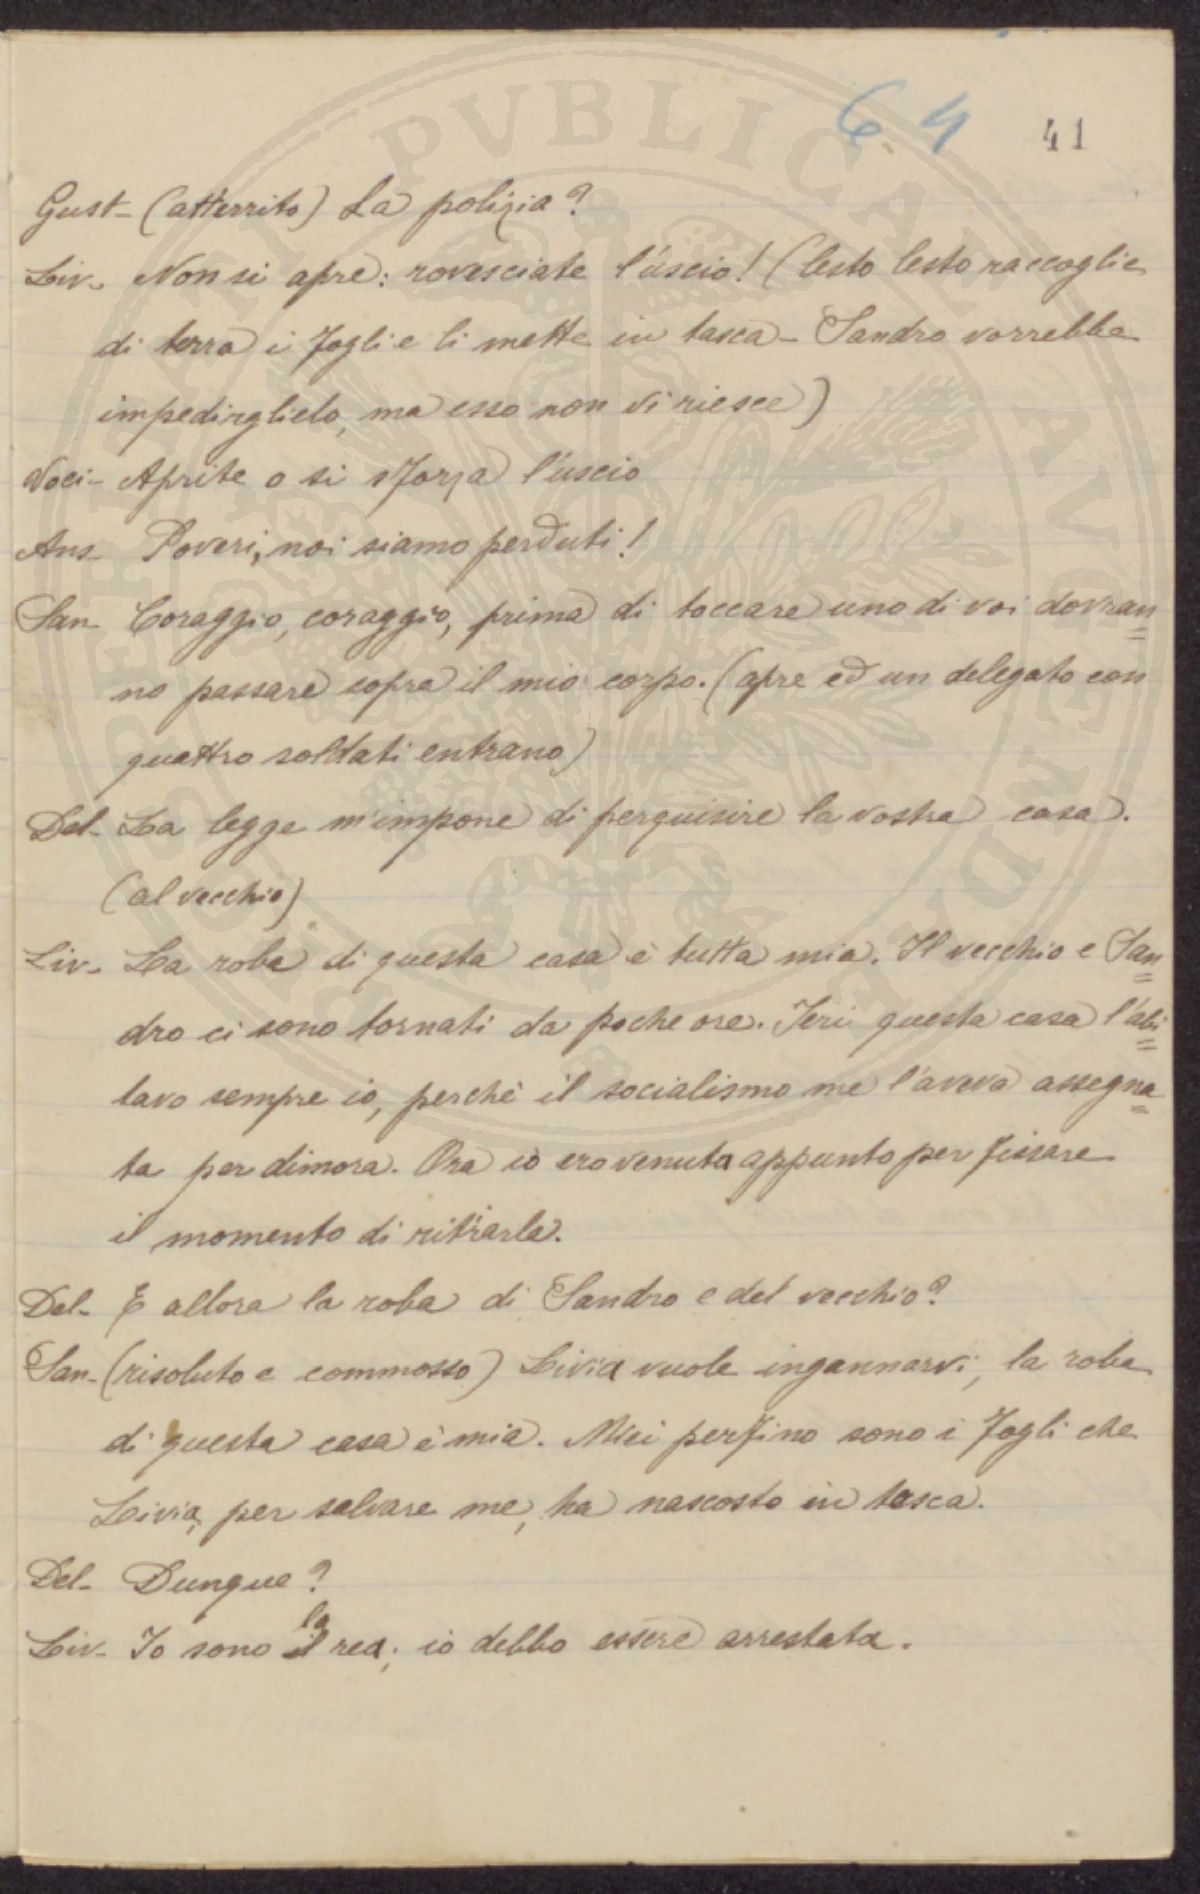 6.4 41
Gust- (atterrito) La polizia?
Liv. Non si apre: rovesciate l'uscio! (lesto lesto raccoglie
di terra i fogli e li mette in tasca- Sandro vorrebbe
impedirglielo, ma esso non vi riesce)
Voci- Aprite o si sforza l'uscio
Ans- Poveri, noi siamo perduti!
San- Coraggio, coraggio, prima di toccare uno di voi dovran=
no passare sopra il mio corpo. (apre ed un delegato con
quattro soldati entrano)
Del- La legge m'impone di perquisire la vostra casa.
(al vecchio)
Liv. La roba di questa casa è tutta mia. Il vecchio e San=
dro ci sono tornati da poche ore. Ieri questa casa l'abi=
tavo sempre io, perchè il socialismo me l'aveva assegna=
ta per dimora. Ora io ero venuta appunto per fissare
il momento di ritirarla.
Del- E allora la roba di Sandro e del vecchio?
San- (risoluto e commosso) Livia vuole ingannarvi, la roba
di questa casa è mia. Miei perfino sono i fogli che
Livia, per salvare me, ha nascosto in tasca.
Del- Dunque?
Liv- Io sono la rea; io debbo essere arrestata.
PVBLICAE AVGENDAE